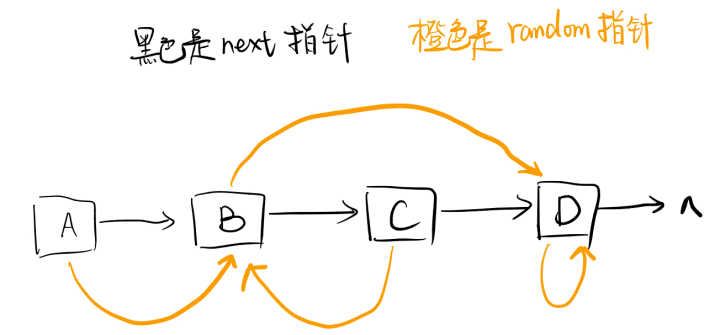 黑色是next指针 橙色是random指针
A B C D n